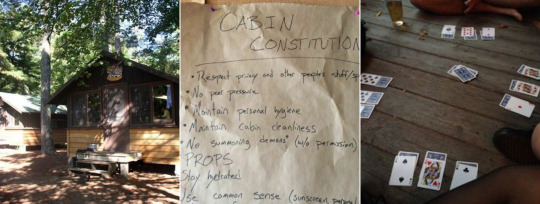 CABIN
CONSTITUTION
• Respect privacy and other peoples stuff/
• No peer pressure
• Maintain personal hygiene
• Maintain cabin cleanliness
• No summoning demons* (w/o permission)
PROPS
Stay hydrated
se common sense (sunscreen, personal